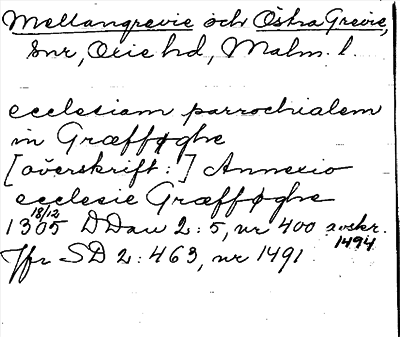 Mellangrevie och Östra Grevie,
snr, Oxie hd, Malm. l.
ecclesiam parrochialem
in Græfføghe
[överskrift:] Annexio
ecclesie Græfføghe
18/12
1305 DDan 2:5, nr 400 avskr.
1494
Jfr SD 2:463, nr 1491